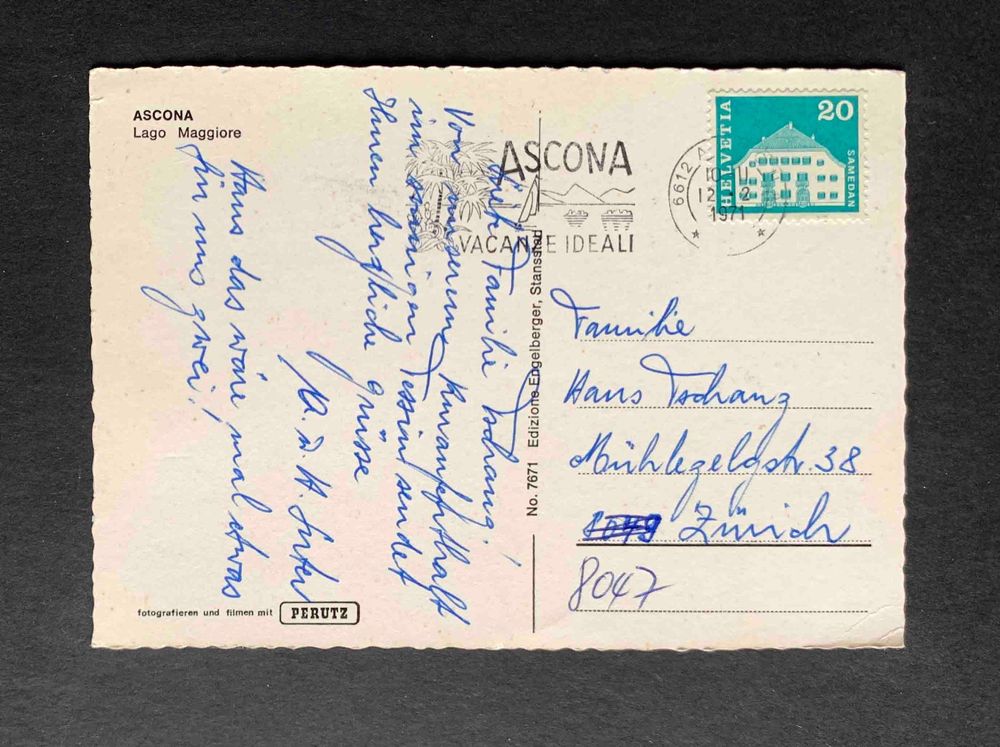 ASCONA
Lago Maggiore
ASCONA
VACANZE IDEALI
6612
12
1971
HELVETIA
20
SAMEDAN
Liebe Familie Tschanz!
Von unserem Kuraufenthalt
im sonnigen Tessin sendet
Ihnen herzliche Grüsse
A. u. H.
Hans das wäre mal etwas
für uns zwei!
No. 7671 Edizione Engelberger, Stansstad
Familie
Hans Tschanz
Mühlezelgstr. 38
Zürich
8047
fotografieren und filmen mit PERUTZ